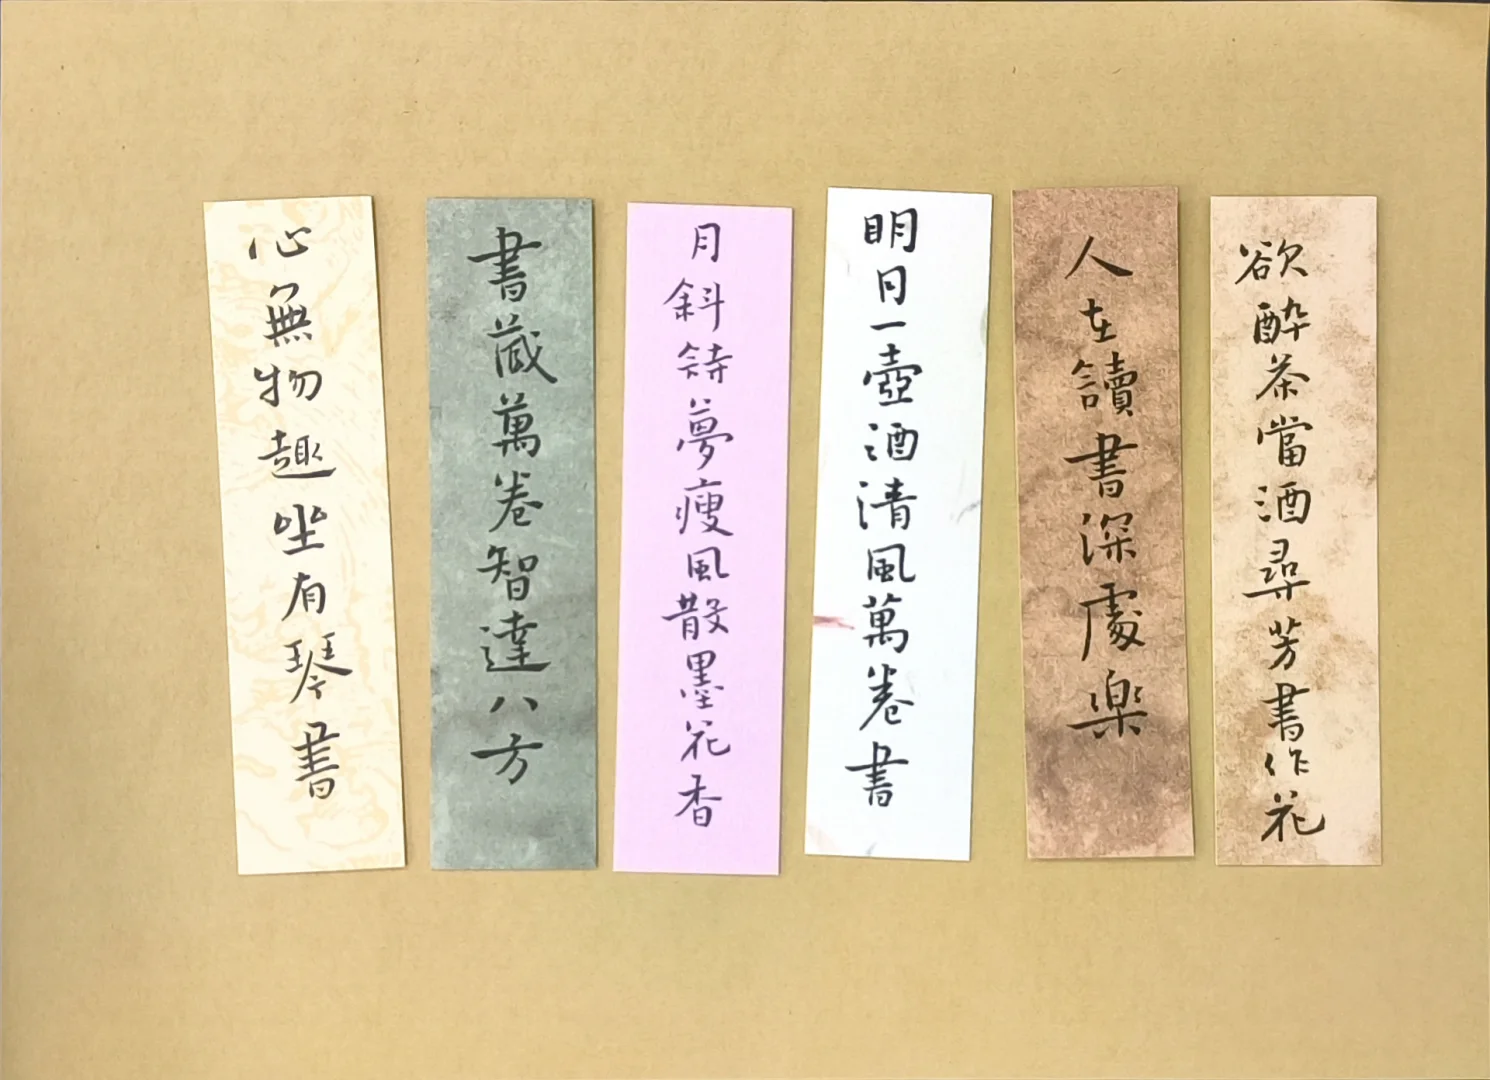 欲醉茶當酒尋芳書作花
人在讀書深處樂
明月一壺酒清風萬卷書
月斜詩夢瘦風散墨花香
書藏萬卷智達八方
心無物趣坐有琴書